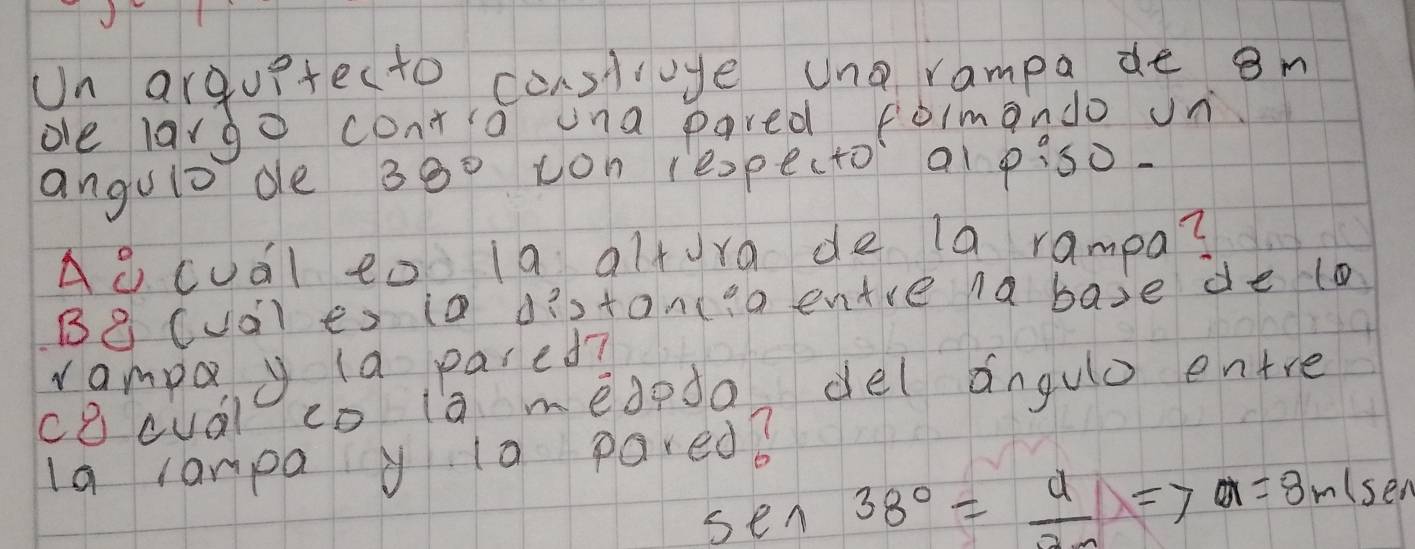 Un arquitecto construye una rampa de 8m
de largo contra una pared formando un
angulo de 38° con respecto al piso-
A ¿cuál es la altura de la rampa?
B ¿cuál es la distancia entre la base de la
rampa y la pared?
C ¿cuál es la medida del ángulo entre
la rampa y la pared?
sen 38° = a/8m => a = 8m(sen